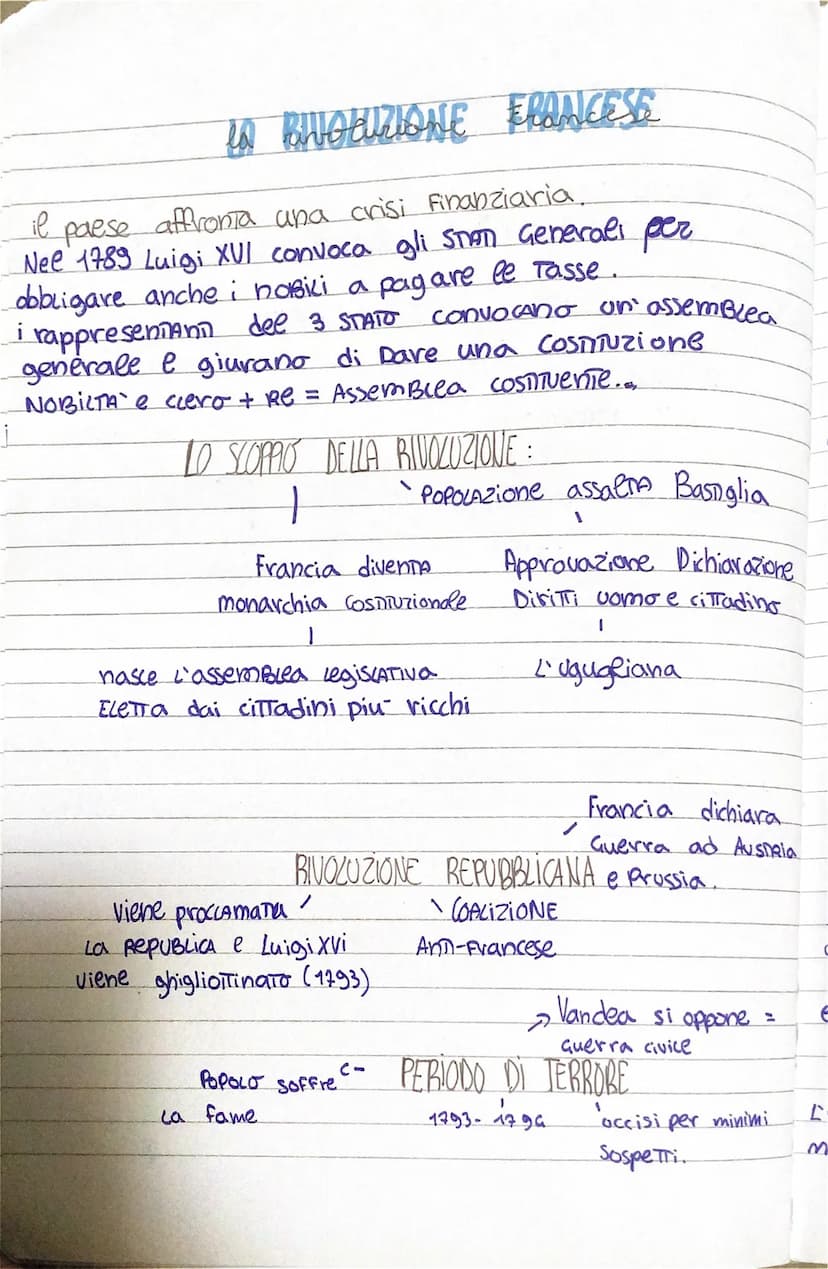 la RIVOLUZIONE FRANCESE
il paese affronta una crisi finanziaria.
Nel 1789 Luigi XVI convoca gli Stati Generali per
obbligare anche i nobili a pagare le tasse.
i rappresentanti del 3 STATO convocano un'assemblea
generale e giurano di dare una costituzione
NOBILTA' e clero + Re = Assemblea costituente.
LO SCOPPIO DELLA RIVOLUZIONE:
Popolazione assalta Bastiglia
Francia diventa
monarchia costituzionale
Approvazione Dichiarazione
Diritti uomo e cittadino
nasce l'assemblea legislativa
Eletta dai cittadini piu' ricchi
L'ugugliana
Francia dichiara
Guerra ad Austria
RIVOLUZIONE REPUBBLICANA e Prussia.
Viene proclamata
COALIZIONE
la Republica e Luigi XVI
Anti-Francese
viene ghigliottinato (1793)
→ Vandea si oppone =
Guerra civile
Popolo soffre
PERIODO DI TERRORE
la fame
1793-1794
occisi per minimi
Sospetti.